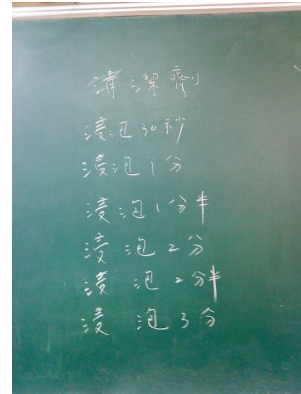 清潔劑
浸泡30秒
浸泡1分
浸泡1分半
浸泡2分
浸泡2分半
浸泡3分